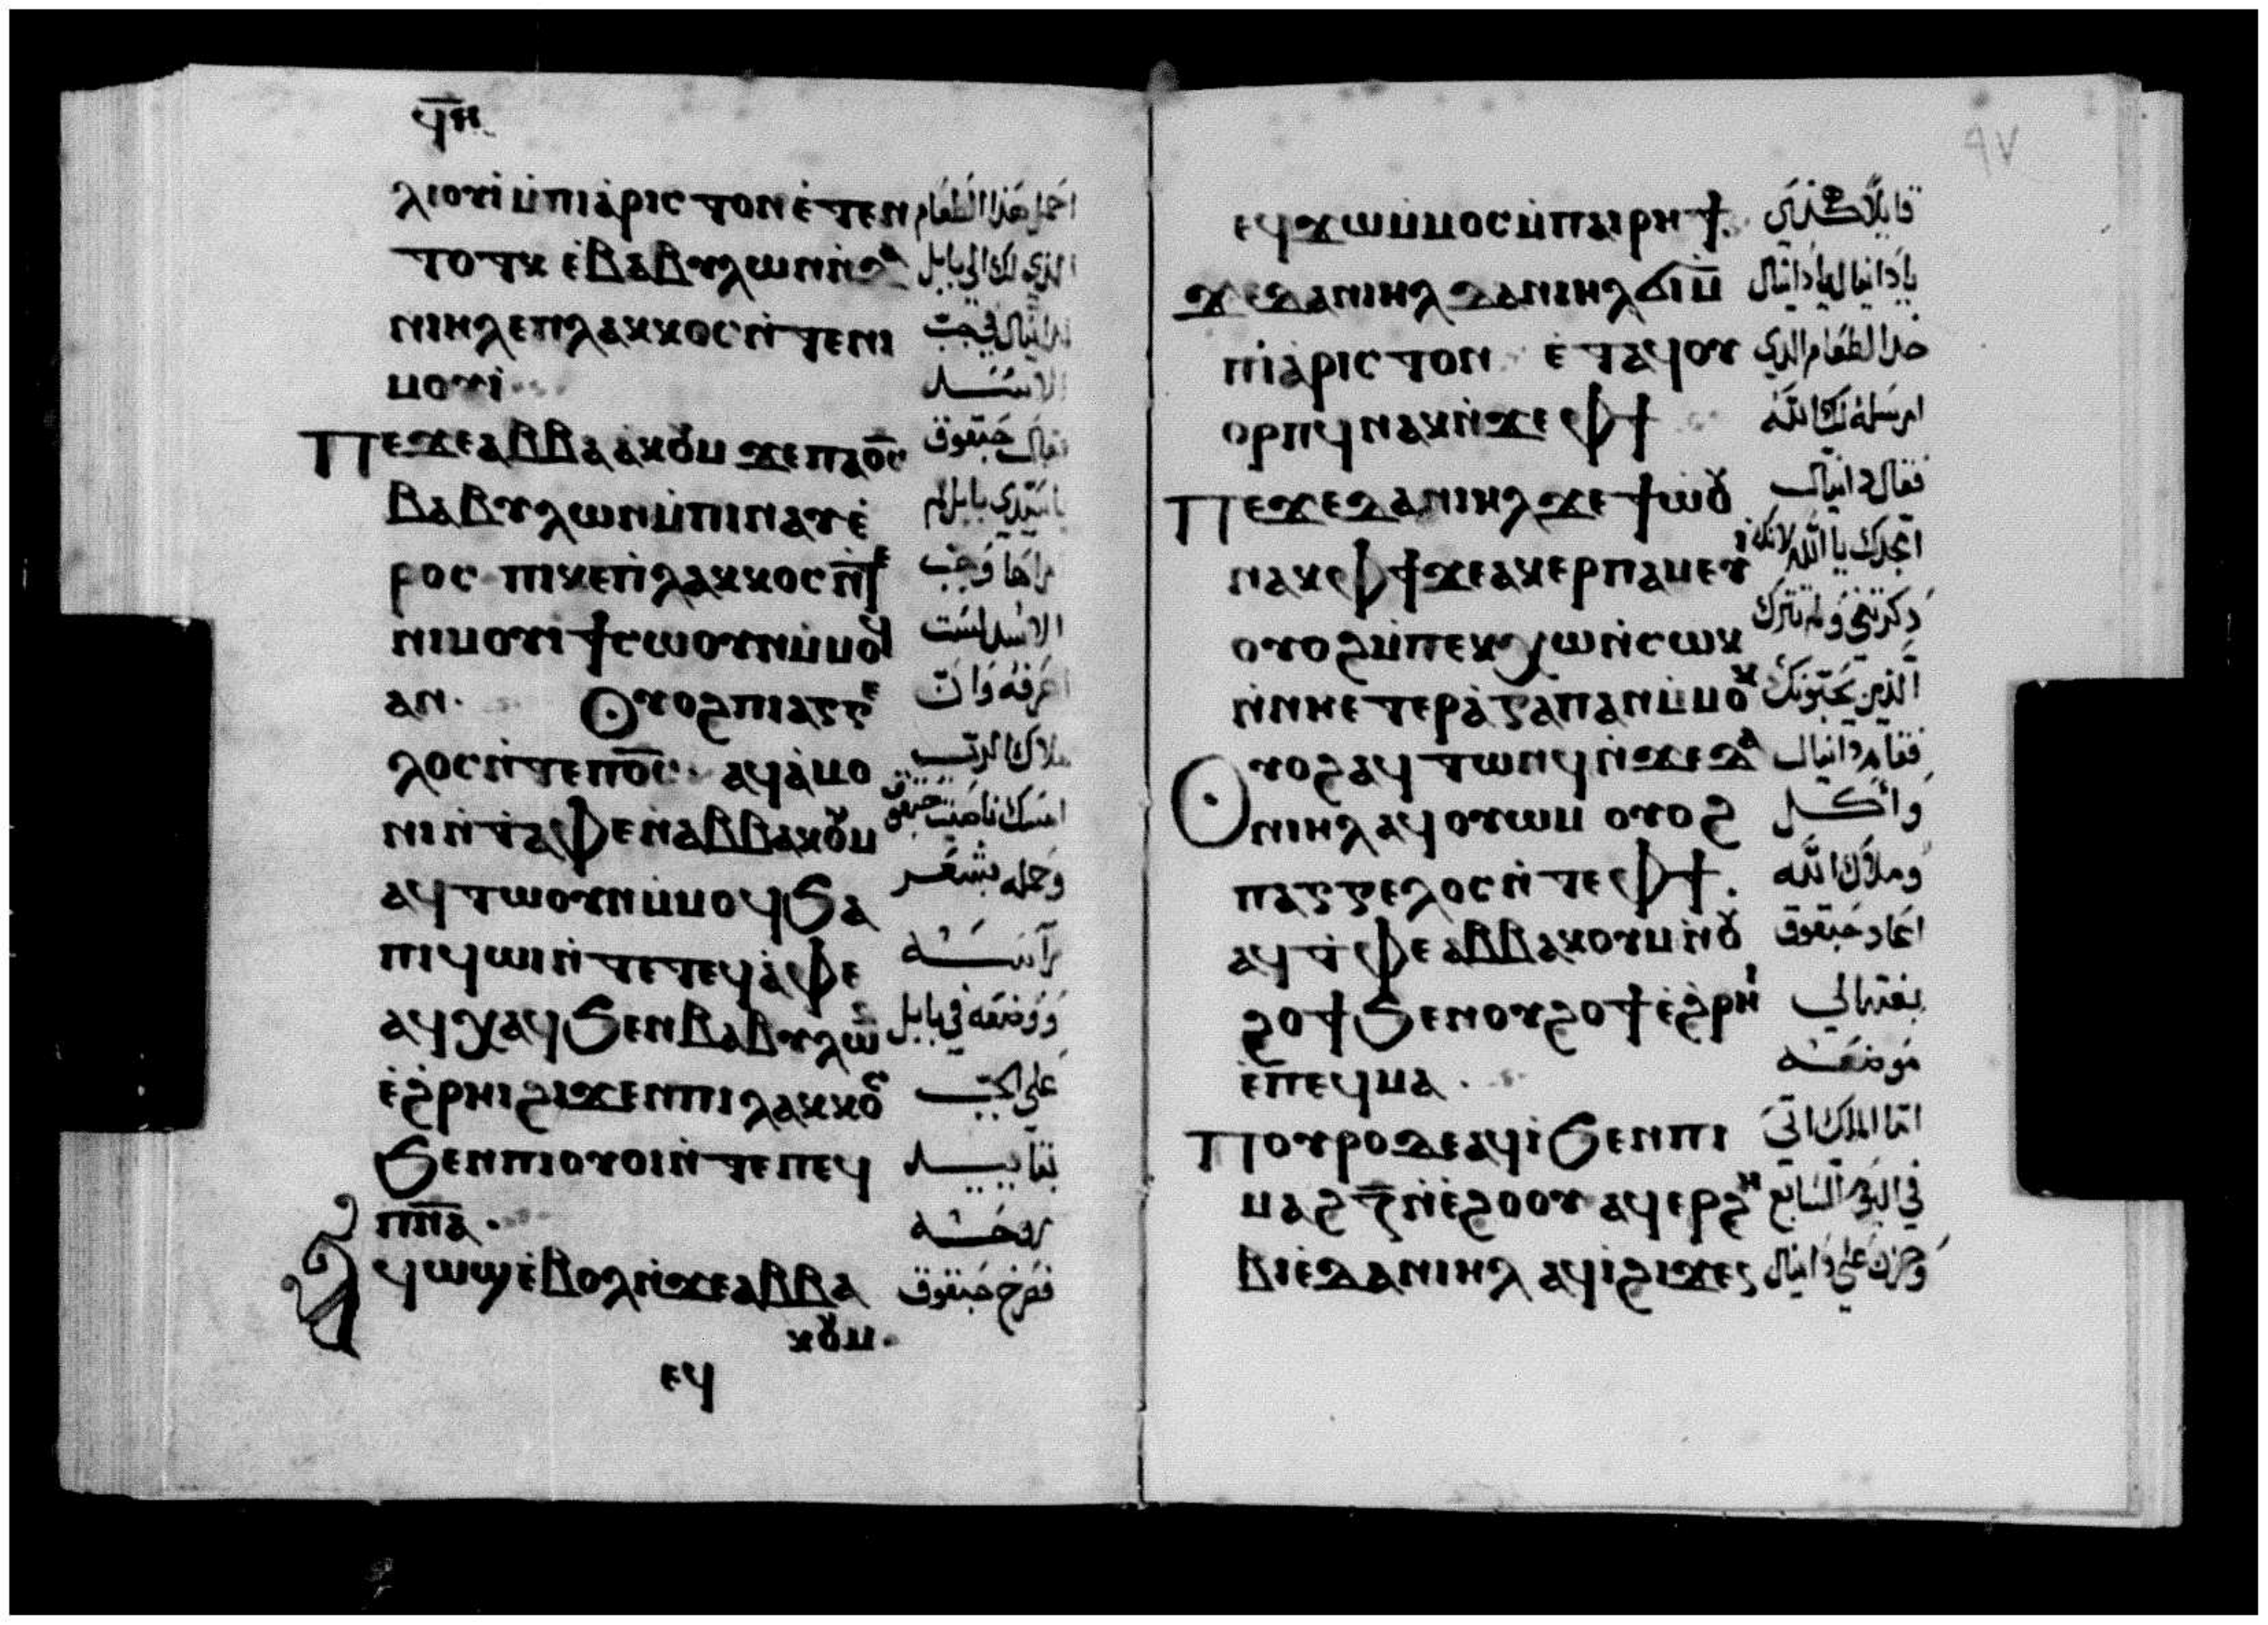 ϥⲏ
ⲗⲓⲟⲩⲓ̀ ⲙ̀ⲡⲓⲁ̀ⲣⲓⲥⲧⲟⲛ ⲉ̀ⲧⲉⲛ احمل هذا الطعام
ⲧⲟⲧⲕ ⲉ̀ⲃⲁⲃⲩⲗⲱⲛ ⲛ̀ⲇⲁ الذي لك الى بابل
ⲛⲓⲏⲗ ⲉⲡⲗⲁⲕⲕⲟⲥ ⲛ̀ⲧⲉⲛⲓ دانيال في جب
ⲙⲟⲩⲓ̀ الاسد
Ⲡⲉϫⲉ ⲁⲃⲃⲁⲁ̀ⲕⲟⲩⲙ ϫⲉ ⲡⲁⲟ̅ⲥ̅ فقال حبقوق
ⲃⲁⲃⲩⲗⲱⲛ ⲙ̀ⲡⲓⲛⲁⲩ ⲉ̀ ياسيدي بابل لم
ⲣⲟⲥ ⲡⲓⲕⲉⲡⲗⲁⲕⲕⲟⲥ ⲛ̀ⲧⲉ اراها وجب
ⲛⲓⲙⲟⲩⲓ ϯⲥⲱⲟⲩⲛ ⲙ̀ⲙⲟϥ الاسد لست
ⲁⲛ. Ⲟⲩⲟϩ ⲡⲓⲁⲅⲅⲉ اعرفه وان
ⲗⲟⲥ ⲛ̀ⲧⲉ ⲡⲟ̅ⲥ̅ ⲁϥⲁ̀ⲙⲟ ملاك الرب
ⲛⲓ ⲛ̀ⲧⲁⲫⲉ ⲛ̀ⲁⲃⲃⲁⲕⲟⲩⲙ امسك ناصية حبقوق
ⲁϥⲧⲱⲟⲩⲛ ⲙ̀ⲙⲟϥ ϧⲁ وحمله بشعر
ⲡⲓϥⲱⲓ ⲛ̀ⲧⲉ ⲧⲉϥⲁ̀ⲫⲉ رأسه
ⲁϥⲭⲁϥ ϧⲉⲛ ⲃⲁⲃⲩⲗⲱⲛ ووضعه في بابل
ⲉ̀ϩ̀ⲣⲏⲓ ϩⲓϫⲉⲛ ⲡⲓⲗⲁⲕⲕⲟⲥ على الجب
ϧⲉⲛ ⲡⲓⲟⲩⲟⲓ ⲛ̀ⲧⲉ ⲡⲉϥ بتأييد
ⲡ̅ⲛ̅ⲁ̅. روحه
Ⲁϥⲱϣ ⲉ̀ⲃⲟⲗ ⲛ̀ϫⲉ ⲁⲃⲃⲁ فصرخ حبقوق
ⲕⲟⲩⲙ.
ⲉϥ
٩٧
ⲉϥϫⲱ ⲙ̀ⲙⲟⲥ ⲙ̀ⲡⲁⲓⲣⲏϯ. قايلا هكذي
ϫⲉ ⲇⲁⲛⲓⲏⲗ ⲇⲁⲛⲓⲏⲗ ϭⲓ ⲙ̀ يا دانيال يا دانيال
ⲡⲓⲁ̀ⲣⲓⲥⲧⲟⲛ ⲉ̀ⲧⲁϥⲟⲩ خد الطعام الذي
ⲟⲣⲡϥ ⲛⲁⲕ ⲛ̀ϫⲉ ⲫϯ ارسله لك الله
Ⲡⲉϫⲉ ⲇⲁⲛⲓⲏⲗ ϫⲉ ϯⲱ̀ⲟⲩ فقال دانيال
ⲛⲁⲕ ⲫϯ ϫⲉ ⲁⲕⲉⲣⲡⲁⲙⲉⲩⲓ̀ امجدك يا الله لانك
ⲟⲩⲟϩ ⲙ̀ⲡⲉⲕⲭⲱ ⲛ̀ⲥⲱⲕ دكرتني ولم تترك
ⲛ̀ⲛⲏⲉⲧⲉⲣⲁ̀ⲅⲁⲡⲁⲛ ⲙ̀ⲙⲟⲕ الذين يحبونك
Ⲟⲩⲟϩ ⲁϥⲧⲱⲛϥ ⲛ̀ϫⲉ ⲇⲁ فقام دانيال
ⲛⲓⲏⲗ ⲁϥⲟⲩⲱⲙ ⲟⲩⲟϩ وأكل
ⲡⲁⲅⲅⲉⲗⲟⲥ ⲛ̀ⲧⲉ ⲫϯ. وملاك الله
ⲁϥⲧ̀ⲫⲉ ⲁⲃⲃⲁⲕⲟⲩⲙ ⲛ̀ⲟⲩ اعاد حبقوق
ϩⲟϯ ϧⲉⲛ ⲟⲩϩⲟϯ ⲉ̀ϩ̀ⲣⲏⲓ بغتة الى
ⲉ̀ⲡⲉϥⲙⲁ. موضعه
Ⲡⲟⲩⲣⲟ ⲇⲉ ⲁϥⲓ̀ ϧⲉⲛ ⲡⲓ اما الملك اتى
ⲙⲁϩ ⲍ̅ ⲛ̀ⲉ̀ϩⲟⲟⲩ ⲁϥⲉⲣϩⲏ في اليوم السابع
ⲃⲓ ⲉ̀ⲇⲁⲛⲓⲏⲗ ⲁϥⲓ̀ ϩⲓϫⲉⲛ وحزن على دانيال